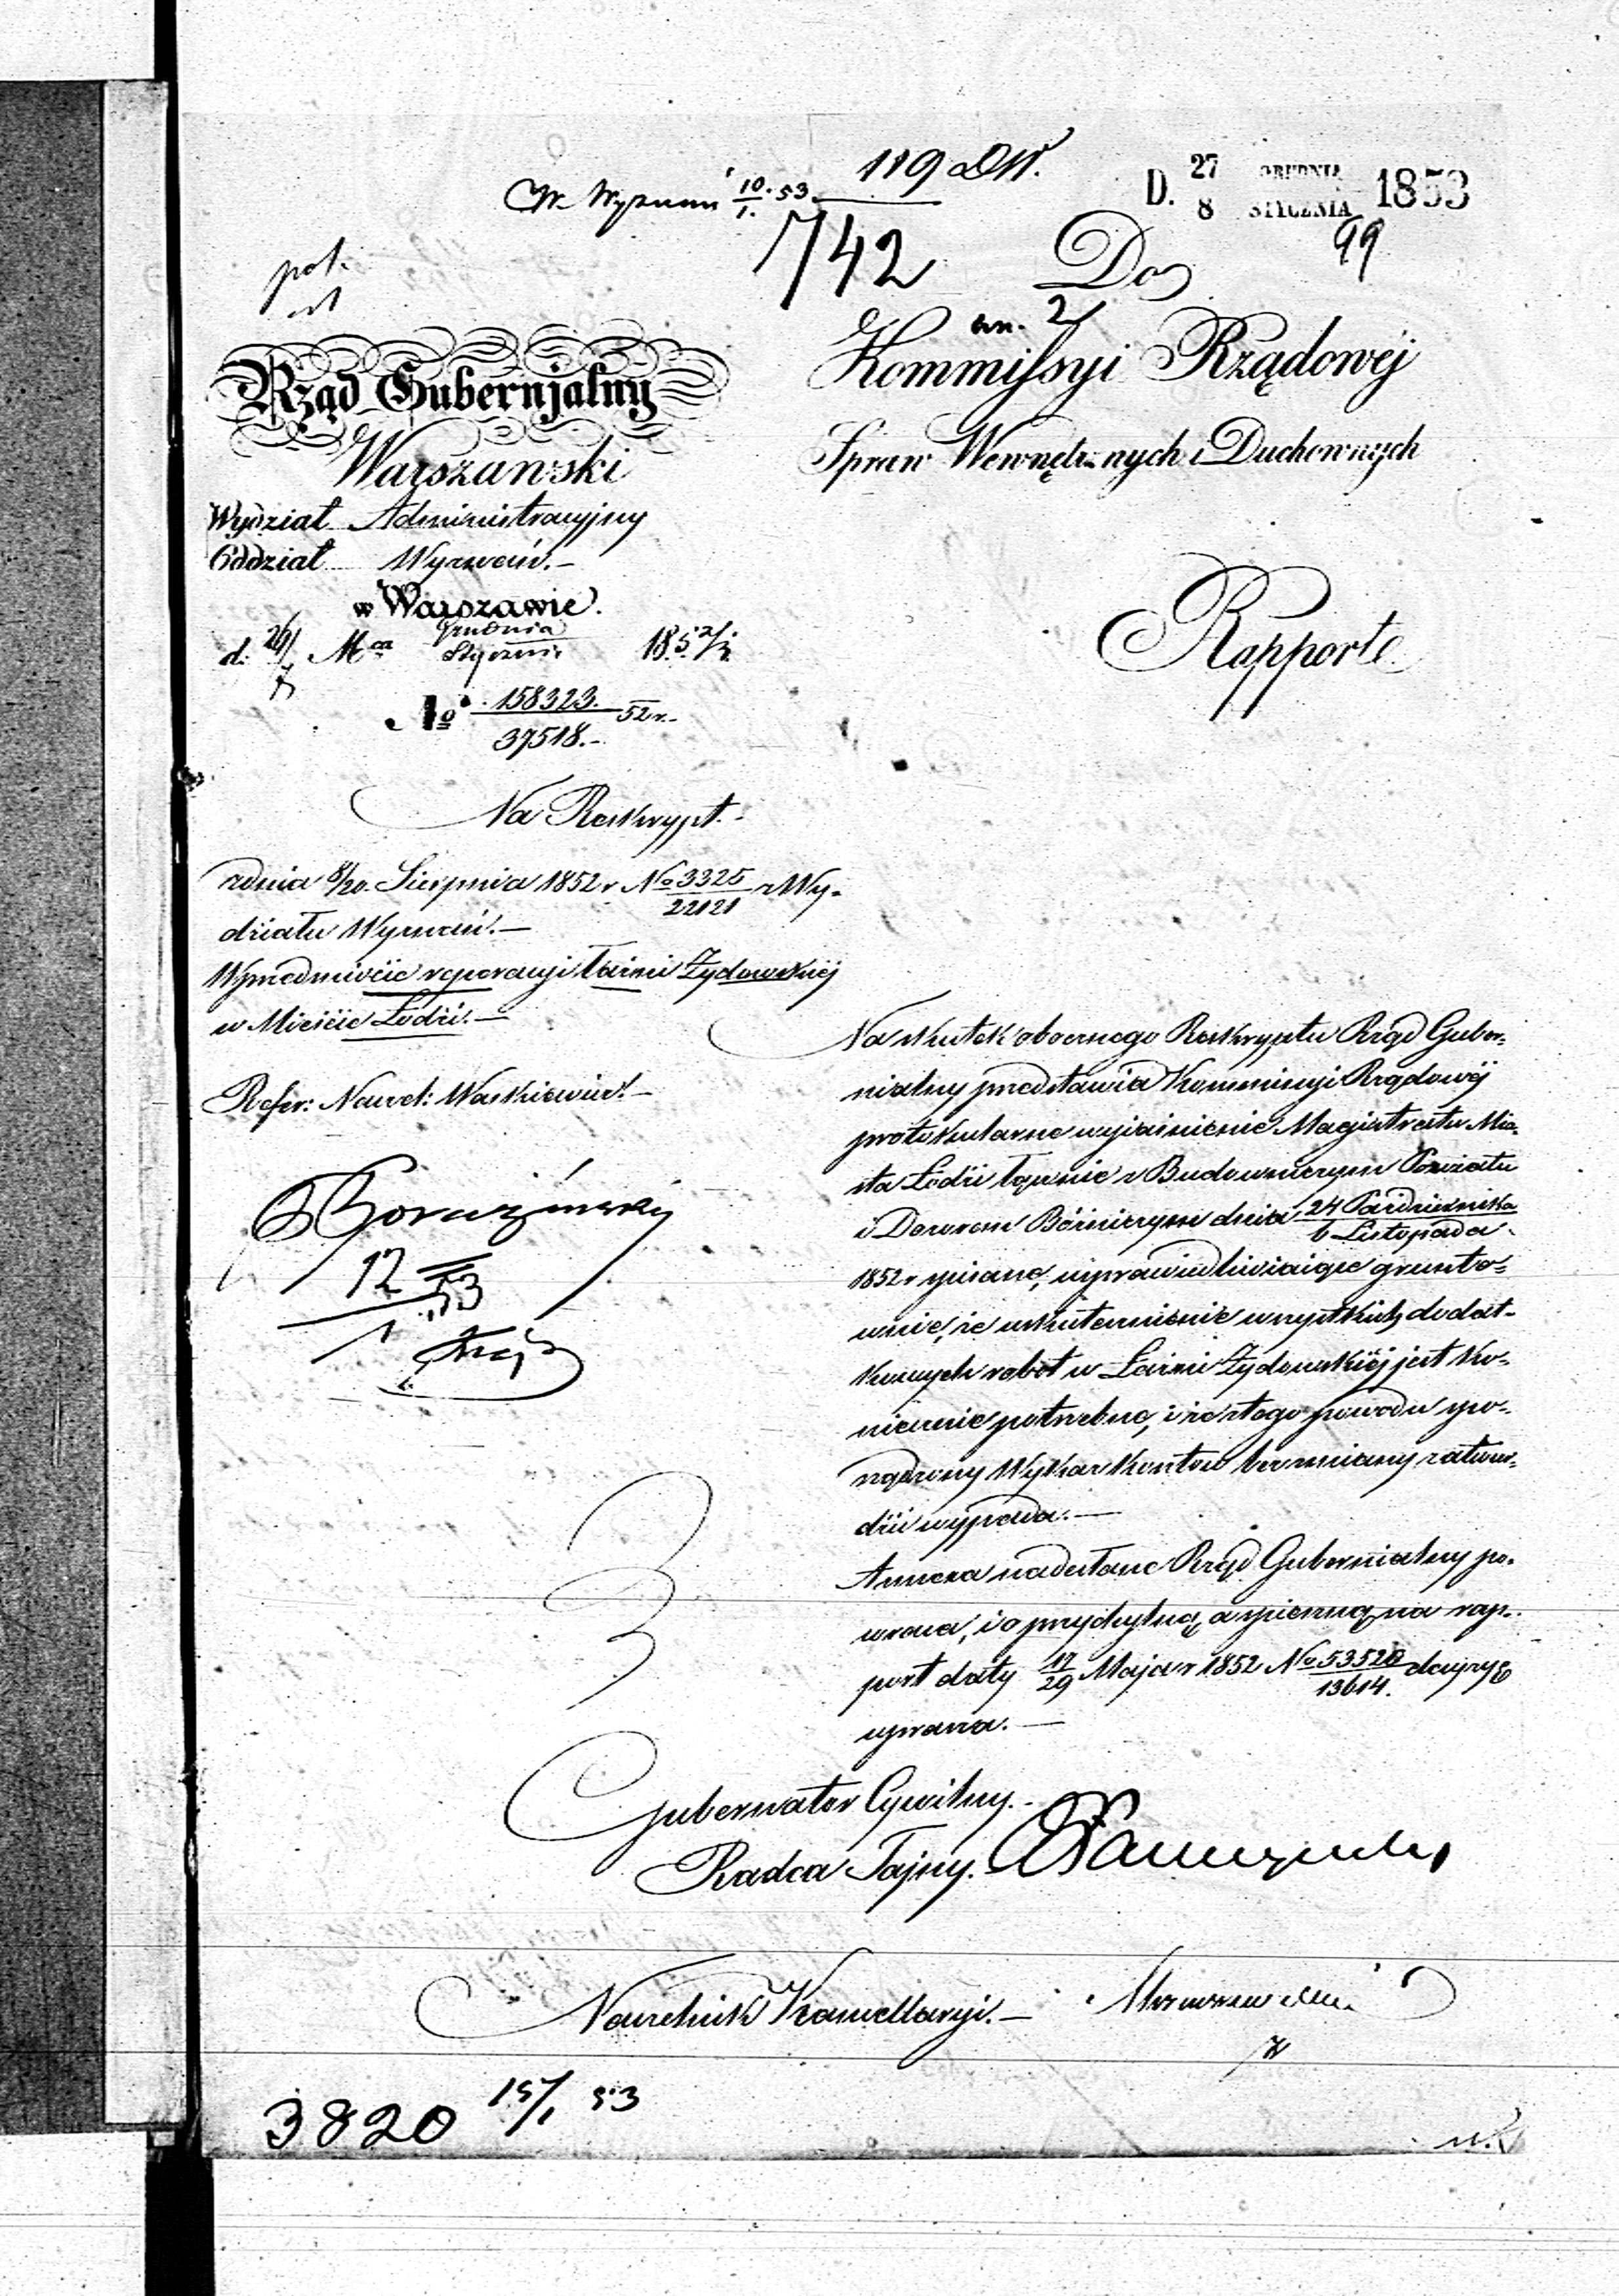 119 DW.
W. Wyznań 10/1. 53.
742
D. 27 GRUDNIA / 8 STYCZNIA 1853
99
Do
an. 2
Kommissyi Rządowéj
Spraw Wewnętrznych i Duchownych
Rapport
Rząd Gubernjalny
Warszawski
Wydział Administracyjny
Oddział Wyznań.—
w Warszawie.
d. 26/7 Mca Grudnia / Stycznia 185 2/3
No 158323. / 37518.— 52 r.—
Na Reskrypt.—
z dnia 8/20. Sierpnia 1852 r No 3325 / 22121 z Wy-
działu Wyznań.—
W przedmiocie reperacyi Łaźni Żydowskiéj
w Mieście Łodzi.—
Refer: Naczel: Waśkiewicz.—
12/1 53
Na skutek obocznego Reskryptu Rząd Guber-
nialny przedstawia Kommissyi Rządowéj
protokularne wyjaśnienie Magistratu Mia-
sta Łodzi łącznie z Budowniczym Powiatu
i Dozorem Bóżniczym dnia 24 Października / 6 Listopada
1852 r spisane, usprawiedliwiaiące grunto-
wnie, że uskutecznienie wszystkich dodat-
kowych robot w Łaźni Żydowskiéj jest ko-
niecznie potrzebne, i że z tego powodu spo-
rządzony Wykaz kosztow bez zmiany zatwier-
dzić wypada.—
Annexa nadesłane Rząd Gubernialny po-
wraca, i o przychylną a spieszną na rap-
port daty 17/29 Maja r 1852 No 53528 / 13614. decyzyę
uprasza.—
Gubernator Cywilny.—
Radca Tajny.
Naczelnik Kancellaryi.—
3820 15/1 53